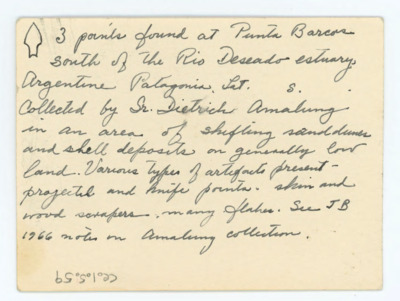 3 points found at Punta Barcos
South of the Rio Deseado estuary,
Argentine Patagonia. Lat. S.
Collected by Sr. Dietrich Amalung
in an area of shifting sand dunes
and shell deposits on generally low
land. Various types of artifacts present -
projectil and knife points. skin and
wood scrapers. many flakes. See JB
1966 notes on Amalung collection.